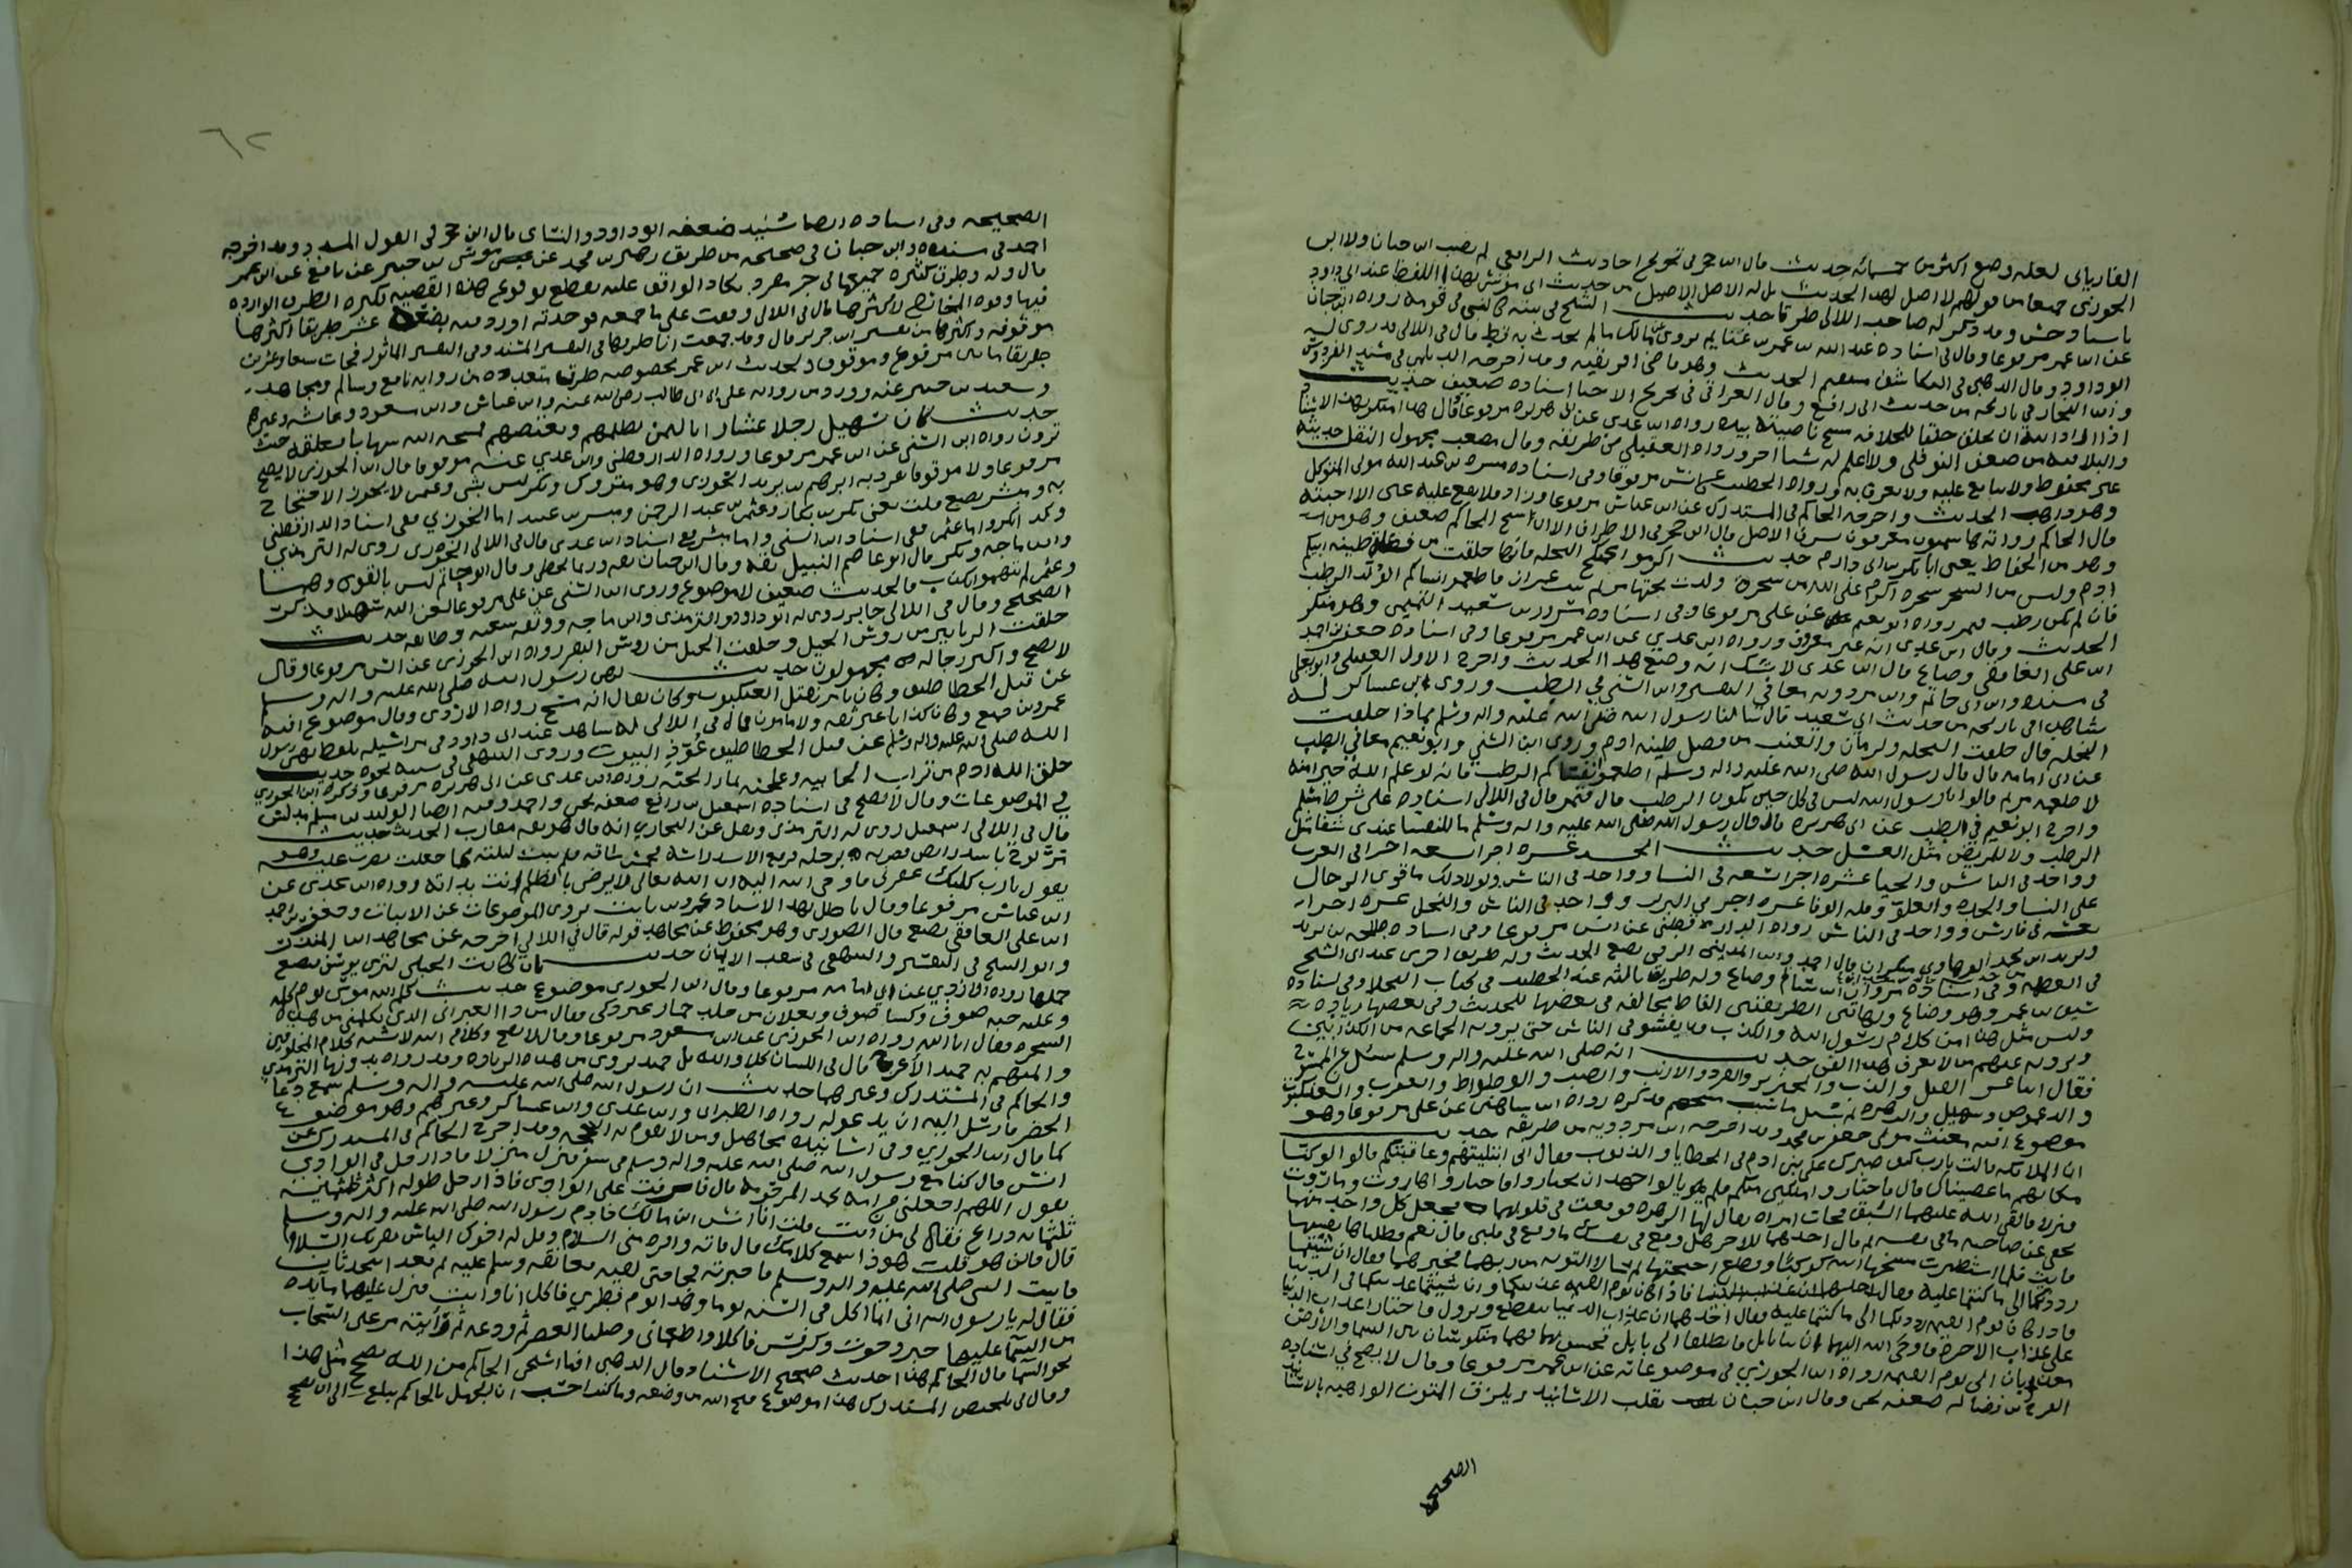 الفاريابى لعله وضع اكثر من خمسمائه حديث قال ابن حجر فى تخريج احاديث الرافعى لم يصب ابن حبان ولا ابن
الجوزى جميعا من قولهم لا اصل لهذا الحديث بل له الاصل الاصيل من حديث ابى موسى بهذا اللفظ عند ابى داود
باسناد حسن وقد ذكر له صاحب اللالى طرقا حديث الشيخ فى بيته كالنبى فى قومه رواه ابن حبان
عن ابن عمر مرفوعا وقال فى اسناده عبد الله بن عمر بن غنايم يروى عن مالك ما لم يحدث به قط قال فى اللالى قد روى له
ابو داود وقال الذهبى فى الكاشف مستقيم الحديث وهو قاضى افريقيه وقد اخرجه الديلمى فى مسند الفردوس
وابن النجار فى تاريخه من حديث ابى رافع وقال العراقى فى تخريج الاحيا اسناده ضعيف حديث
اذا اراد الله ان يخلق خلقا للخلافه مسح ناصيته بيده رواه ابن عدى عن ابى هريره مرفوعا وقال هذا منكر بهذا الاسناد
والبلا فيه من مصعب النوفلى ولا اعلم له شيا اخر ورواه العقيلى من طريقه وقال مصعب مجهول النقل حديثه
غير محفوظ ولا يتابع عليه ولا يعرف به ورواه الخطيب عن انس مرفوعا وفى اسناده مسره بن عبد الله مولى المتوكل
وهو ذاهب الحديث واخرجه الحاكم فى المستدرك عن ابن عباس مرفوعا وزاد فلا يقع عليه عين الا احبته
قال الحاكم رواته هاشميون معروفون بشرف الاصل قال ابن حجر فى الاطراف الا ان شيخ الحاكم ضعيف وهو من
وهو من الحفاظ يعنى ابا بكر بن ابى دارم حديث اكرموا عمتكم النخله فانها خلقت من فضله طينه ابيكم
ادم وليس من الشجر شجره اكرم على الله من شجره ولدت تحتها مريم بنت عمران فاطعموا نساكم الولد الرطب
فان لم يكن رطب فتمر رواه ابو نعيم عن على مرفوعا وفى اسناده مسرور بن سعيد التميمى وهو منكر
الحديث وقال ابن عدى انه غير معروف ورواه ابن عدى عن ابن عمر مرفوعا وفى اسناده جعفر بن احمد
بن على الغافقى وضاع قال ابن عدى لا شك انه وضع هذا الحديث واخرج الاول العقيلى وابو يعلى
فى مسنده وابن ابى حاتم وابن مردويه معا فى التفسير وابن السنى فى الطب وروى ابن عساكر له
شاهدا فى تاريخه من حديث ابى سعيد قال سالنا رسول الله صلى الله عليه واله وسلم مماذا خلقت
النخله قال خلقت النخله والرمان والعنب من فضل طينه ادم وروى ابن السنى وابو نعيم معا فى الطب
عن ابى امامه قال قال رسول الله صلى الله عليه واله وسلم اطعموا نفساكم الرطب فانه لو علم الله خيرا منه
لاطعمه مريم قالوا يا رسول الله ليس فى كل حين يكون الرطب قال فتمر قال فى اللالى اسناده على شرط مسلم
واخرج ابو نعيم فى الطب عن ابى هريره قال قال رسول الله صلى الله عليه واله وسلم ما للنفسا عندى شفا مثل
الرطب ولا للمريض مثل العسل حديث الحسد عشره اجزا تسعه اجزا فى العرب
وواحد فى الناس والحيا عشره اجزا تسعه فى النسا وواحد فى الناس ولولا ذلك ما قوى الرجال
على النسا والحده والعلو وقله الوفا عشره اجزا فى البربر وواحد فى الناس والبخل عشره اجزا
تسعه فى فارس وواحد فى الناس رواه الدارقطنى عن انس مرفوعا وفى اسناده طلحه بن يزيد
ويزيد ابن محمد الرهاوى منكران قال احمد وابن المدينى الرقى يضع الحديث وله طريق اخرى عند ابى الشيخ
فى العظمه وفى اسناده مروان بن سالم وضاع وله طريق ثالثه عند الخطيب فى كتاب البخلا وفى اسناده
سيف بن عمر وهو وضاع وبهاتين الطريقتين الفاظ مخالفه فى بعضها للحديث وفى بعضها زياده
وليس مثل هذا من كلام رسول الله والكذب قد يفشو فى الناس حتى يرويه الجماعه من الكذابين
ويرويه عنهم من لا يعرف هذا الفن حديث انه صلى الله عليه واله وسلم سئل عن المسوخ
فقال اثنا عشر الفيل والدب والخنزير والقرد والارنب والضب والوطواط والعقرب والعنكبوت
والدعموص وسهيل والزهره ثم سئل ما سبب مسخهم فذكره رواه ابن شاهين عن على مرفوعا وهو
موضوع افته مغيث مولى جعفر بن محمد وقد اخرجه ابن مردويه من طريقه حديث
ان الملائكه قالت يارب كيف صبرك على بنى ادم فى الخطايا والذنوب فقال انى ابتليتهم وعافيتكم قالوا لو كنا
مكانهم ما عصيناك قال فاختاروا ملكين منكم فلم يالوا جهدا ان يختاروا فاختاروا هاروت وماروت
فنزلا فالقى الله عليهما الشبق فجات امراه يقال لها الزهره فوقعت فى قلوبهما فجعل كل واحد منهما
يخفى عن صاحبه ما فى نفسه ثم قال احدهما للاخر هل وقع فى نفسك ما وقع فى قلبى قال نعم فطلباها
رددتكما الى ما كنتما عليه
على عذاب الاخره فاوحى الله اليهما ان ائتيا بابل فانطلقا الى بابل فخسف بهما فهما منكوسان بين السما والارض
معذبان الى يوم القيمه رواه ابن الجوزى فى موضوعاته عن ابن عمر مرفوعا وقال لا يصح فى اسناده
الفرج بن فضاله ضعفه يحيى وقال ابن حبان يقلب الاسانيد ويلزق المتون الواهيه بالاسانيد
الصحيحه
٦٢
الصحيحه وفى اسناده ايضا سنيد ضعفه ابو داود والنساى قال ابن حجر فى القول المسدد وقد اخرجه
احمد فى مسنده وابن حبان فى صحيحه من طريق زهير بن محمد عن موسى بن جبير عن نافع عن ابن عمر
قال وله طرق كثيره جمعتها فى جز مفرد يكاد الواقف عليه يقطع بوقوع هذه القصه لكثره الطرق الوارده
فيها وقوه المخارج لاكثرها قال فى اللالى وقفت على ما جمعه فوجدته اورد فيه بضعه عشر طريقا اكثرها
موقوفه واكثرها من تفسير ابن جرير قال وقد جمعت انا طرقها فى التفسير المسند وفى التفسير الماثور فجات سبعا وعشرين
طريقا ما بين مرفوع وموقوف ولحديث ابن عمر بخصوصه طرق متعدده من روايه نافع وسالم ومجاهد
وسعيد بن جبير عنه وورد من روايه على ابن ابى طالب رضى الله عنه وابن عباس وابن مسعود وعائشه وغيرهم
حديث كان سهيل رجلا عشارا باليمن يظلمهم ويغصبهم فمسخه الله شهابا فعلقه حيث
ترون رواه ابن السنى عن ابن عمر مرفوعا ورواه الدارقطنى وابن عدى عنه موقوفا قال ابن الجوزى لا يصح
مرفوعا ولا موقوفا تفرد به ابرهيم بن يزيد الخوزى وهو متروك وبكر ليس بشى وعثمن لا يجوز الاحتجاج
به ومبشر يضع قلت يعنى بكر بن بكار وعثمن بن عبد الرحمن ومبشر بن عبيد اما الخوزى ففى اسناد الدارقطنى
وابن ماجه وبكر قال ابو عاصم النبيل ثقه وقال ابن حبان ثقه ربما يخطى وقال ابو حاتم ليس بالقوى
وعثمن لم يتهموا بكذب فالحديث ضعيف لا موضوع وروى ابن السنى عن على مرفوعا لعن الله سهيلا
خلقت الزنابير من روس الخيل وخلقت النحل من روس البقر رواه ابن الجوزى عن انس مرفوعا وقال
لا يصح واكثر رجاله مجهولون حديث نهى رسول الله صلى الله عليه واله وسلم
عن قتل الخطاطيف وكان يامر بقتل العنكبوت وكان يقال انه مسخ رواه الازدى وقال موضوع افته
عمرو بن جميع وكان كذابا غير ثقه ولا مامون قال فى اللالى له شاهد عند ابى داود فى مراسيله بلفظ نهى رسول
الله صلى الله عليه واله وسلم عن قتل الخطاطيف عوذ البيوت وروى البيهقى فى سننه نحوه حديث
خلق الله ادم من تراب الجابيه وعجنه بماء الجنه رواه ابن عدى عن ابى هريره مرفوعا وذكره ابن الجوزى
فى الموضوعات وقال لا يصح فى اسناده اسمعيل بن رافع ضعفه يحيى واحمد وفيه ايضا الوليد بن مسلم مدلس
قال فى اللالى اسمعيل روى له الترمذى ونقل عن البخارى انه قال هو ثقه مقارب الحديث حديث
ابن عباس مرفوعا وقال باطل بهذا الاسناد عمرو بن ثابت يروى الموضوعات عن الاثبات وجعفر بن احمد
ابن على الغافقى يضع قال الصورى وهو محفوظ عن مجاهد قوله قال فى اللالى اخرجه عن مجاهد ابن المنذر
وابو الشيخ فى التفسير والبيهقى فى شعب الايمان حديث
حملها رواه الازدى عن ابى امامه مرفوعا وقال ابن الجوزى موضوع حديث كلم الله موسى يوم كلمه
وعليه جبه صوف وكسا صوف ونعلان من جلد حمار غير ذكى فقال من ذا العبرانى الذى يكلمنى من هذه
الشجره فقال انا الله رواه ابن الجوزى عن ابن مسعود مرفوعا وقال لا يصح وكلام الله لا يشبه كلام المخلوقين
والمتهم به حميد الاعرج قال فى اللسان كلا والله بل حميد بروى من هذه الزياده وقد رواه بدونها الترمذى
والحاكم فى المستدرك وغيرهما حديث ان رسول الله صلى الله عليه واله وسلم سمع دعا
الخضر فارسل اليه ان يدعو له رواه الطبرانى وابن عدى وابن عساكر وغيرهم وهو موضوع
كما قال ابن الجوزى وفى اسانيده مجاهيل ومن لا تقوم به الحجه وقد اخرج الحاكم فى المستدرك عن
انس قال كنا مع رسول الله صلى الله عليه واله وسلم فى سفر فنزل منزلا فاذا رجل فى الوادى
يقول اللهم اجعلنى من امه محمد المرحومه قال فاشرفت على الوادى فاذا رجل طوله اكثر من
ثلثمايه ذراع فقال لى من انت قلت انا انس بن مالك خادم رسول الله صلى الله عليه واله وسلم
قال فاين هو قلت هو ذا يسمع كلامك قال فاته واقره منى السلام وقل له اخوك الياس يقريك السلام
فاتيت النبى صلى الله عليه واله وسلم فاخبرته فجا حتى لقيه فعانقه وسلم عليه ثم قعدا يتحدثان
فقال له يا رسول الله انى انما اكل فى السنه يوما وهذا يوم فطرى فاكل انا وانت فنزل عليهما مايده
من السما عليها خبز وحوت وكرفس فاكلا واطعمانى وصلينا العصر ثم ودعه ثم رايته مر على السحاب
نحو السما قال الحاكم هذا حديث صحيح الاسناد وقال الذهبى اما استحى الحاكم من الله يصحح مثل هذا
وقال فى تلخيص المستدرك هذا موضوع قبح الله من وضعه وما كنت احسب ان الجهل بالحاكم يبلغ الى ان يصحح